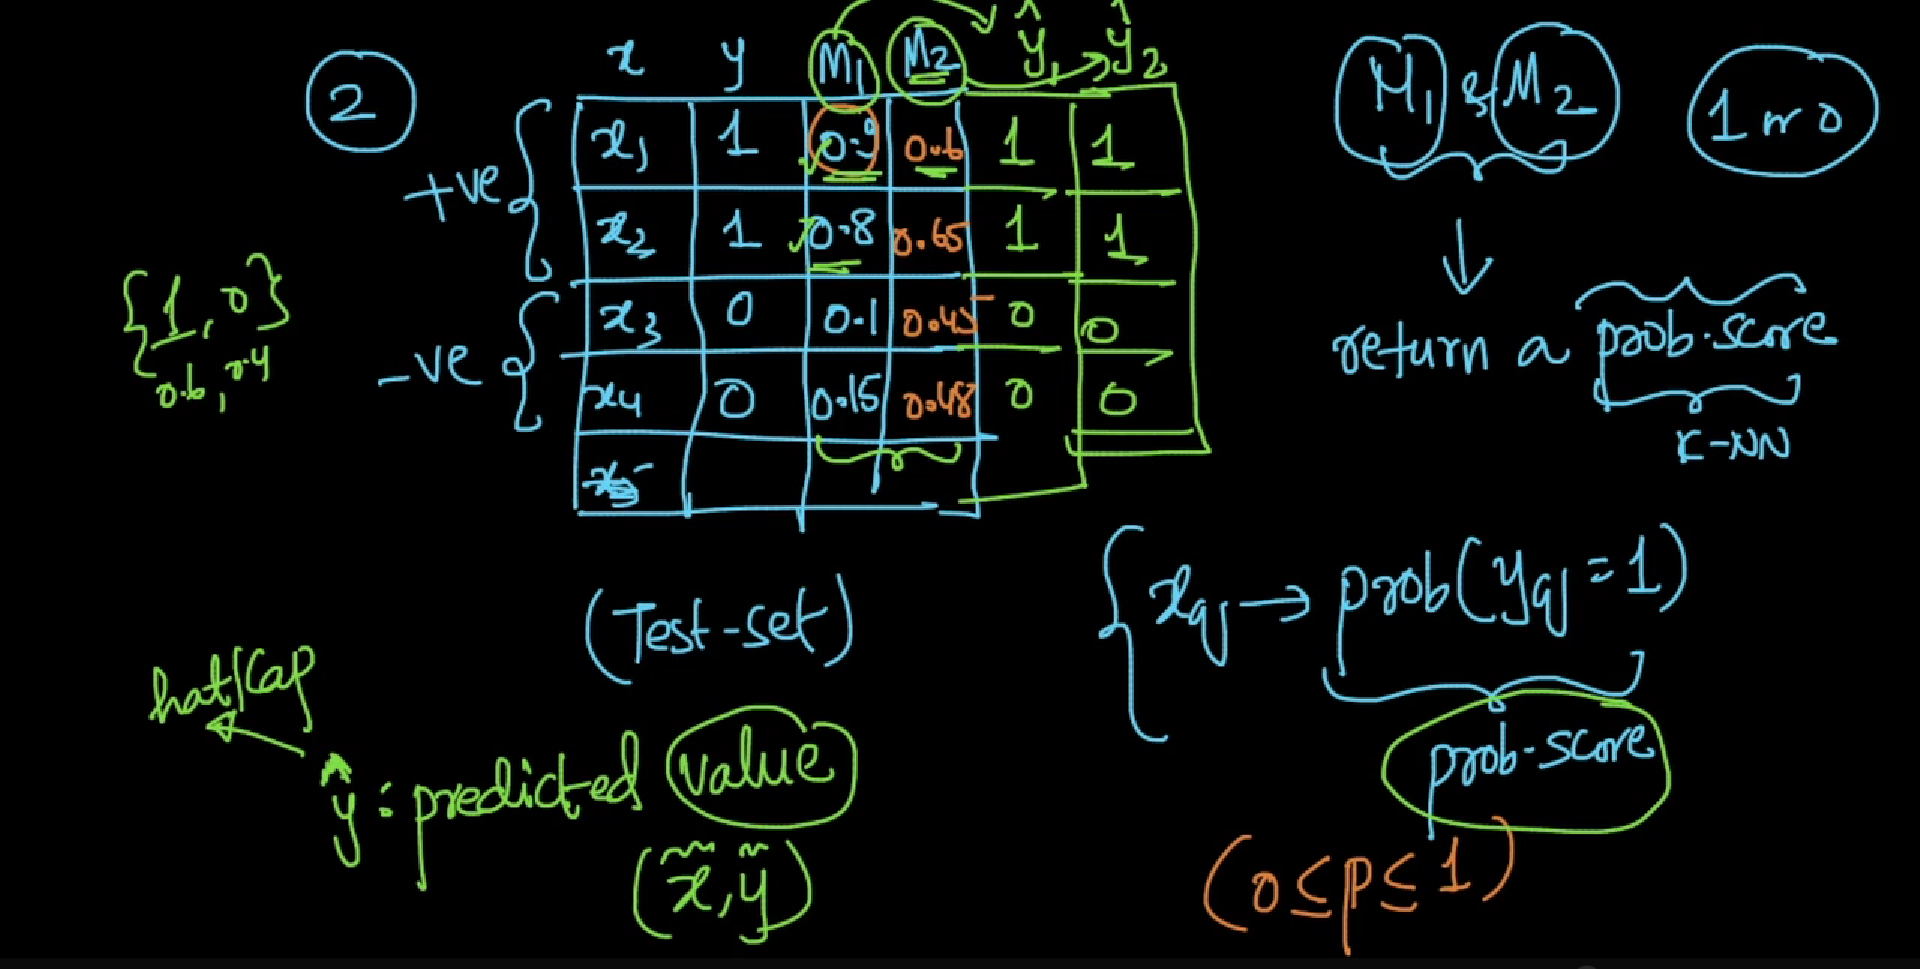 2
x y M1 M2 ŷ1 ŷ2
+ve
x1 1 0.9 0.6 1 1
x2 1 0.8 0.65 1 1
-ve
x3 0 0.1 0.45 0 0
x4 0 0.15 0.48 0 0
x5
{1, 0}
0.6, 0.4
(Test-set)
hat/Cap
ŷ : predicted value
(x̃, ỹ)
M1 & M2
1 or 0
return a prob.score
K-NN
xq → prob(yq = 1)
prob-score
(0 ≤ p ≤ 1)